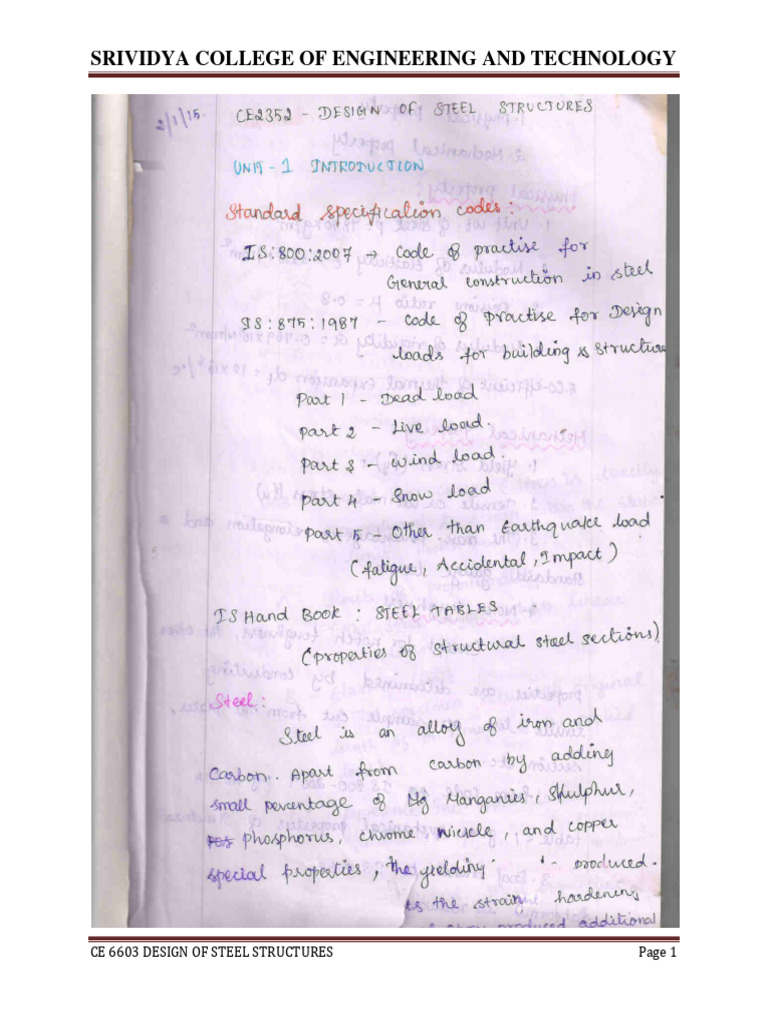 SRIVIDYA COLLEGE OF ENGINEERING AND TECHNOLOGY
2/1/15.
CE2352 - DESIGN OF STEEL STRUCTURES
UNIT - 1 INTRODUCTION
Standard specification codes:
IS:800:2007 → Code of practise for
General construction in steel
IS:875:1987 - Code of Practise for Design
loads for building & Structure
Part 1 - Dead load
Part 2 - Live load.
Part 3 - Wind load.
Part 4 - Snow load
Part 5 - Other than Earthquake load
(fatigue, Accidental, Impact)
IS Hand Book : STEEL TABLES
(properties of structural steel sections)
Steel:
Steel is an alloy of iron and
Carbon. Apart from carbon by adding
small percentage of Mg Manganies, Sulphur,
phosphorus, chrome nickle, and copper
special properties, the yielding produced.
is the strain hardening
produced additional
CE 6603 DESIGN OF STEEL STRUCTURES Page 1